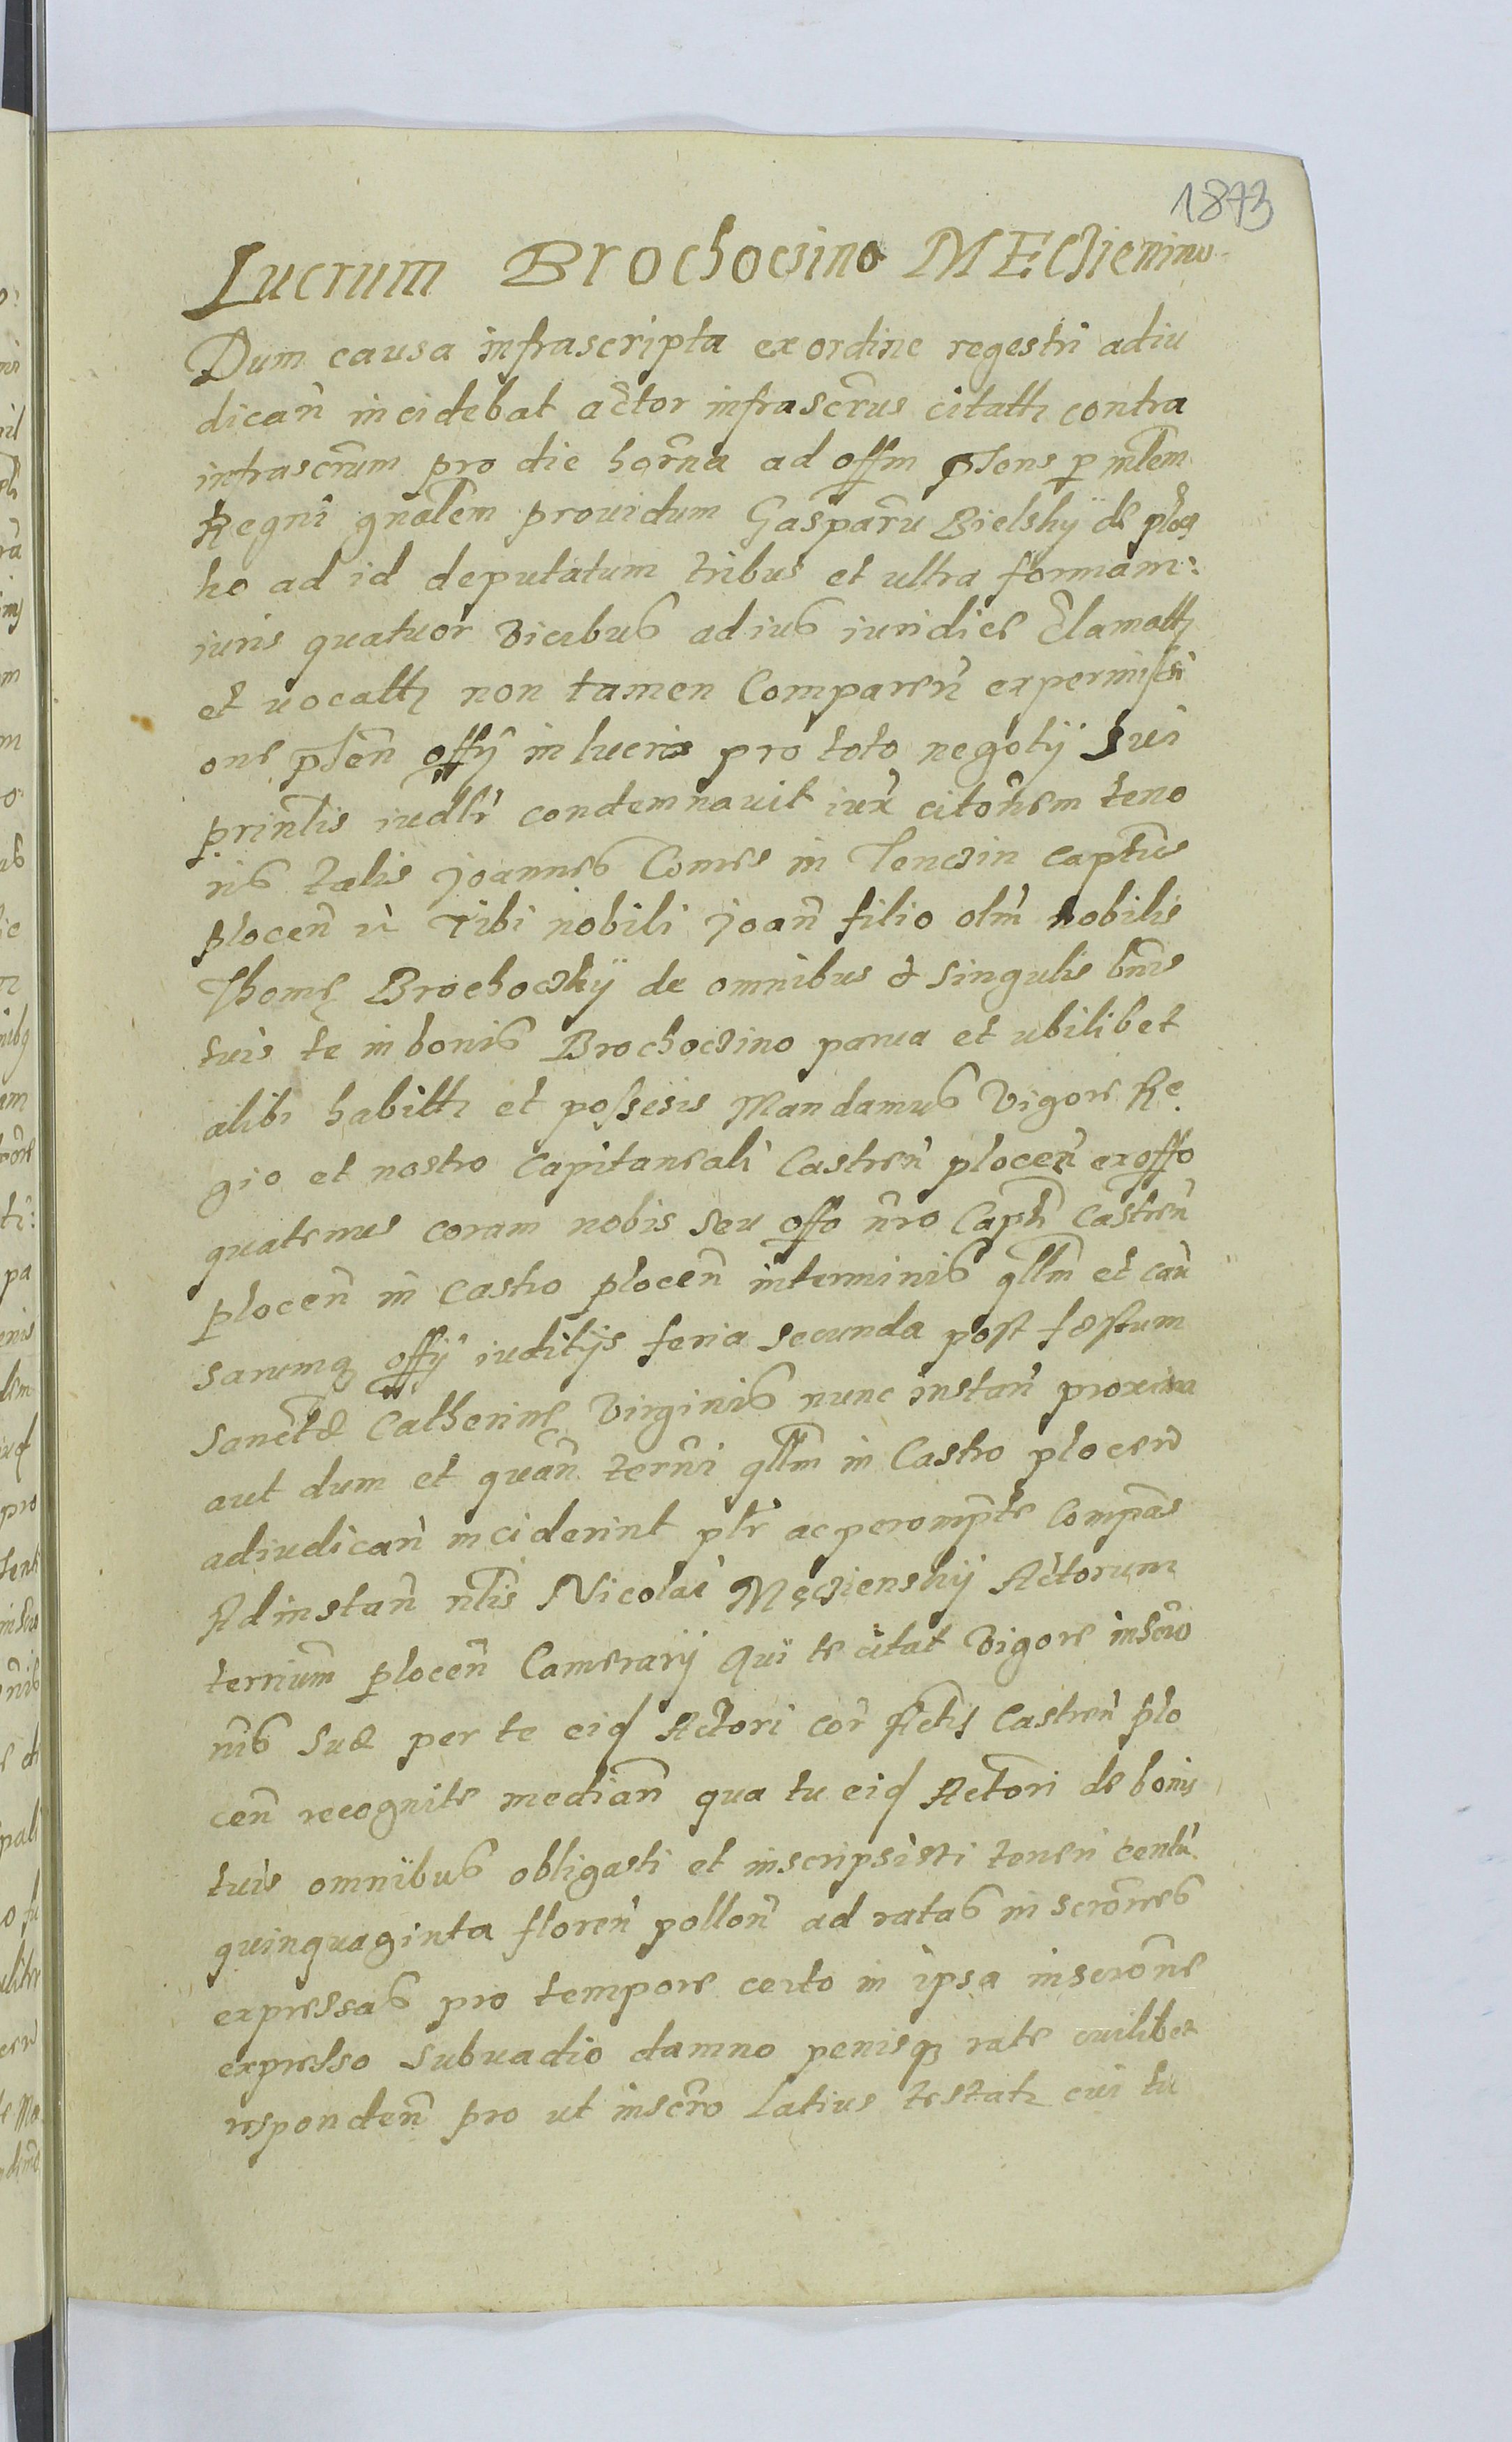 1873
Lucrum Brochoczino MECzienino
Dum causa infrascripta ex ordine regestri adiu
dican̄ incidebat actor infrascr̄us citatt contra
infrascr̄um pro die hor̄na ad off̄m p̄sens p mlēm
Regni gnalēm prouidum Gasparū Bielskÿ de ploc
ko ad id deputatum tribus et ultra formam:
iuris quatuor vicibus ad ius iuridice c̄lamatt
et uocatt non tamen Comparen̄ ex permissi
one p̄sen̄ off̄y in lucris pro toto negotij sui
prinlīs iudlr̄ condemnauit iux̄ citōnem teno
ris talis Joannes Comes in Tenczin Captūs
plocen̄ Tibi nobili Joan̄ filio olim̄ nobilis
Thomę Brochoczkÿ de omnibus & singulis bnīs
tuis te in bonis Brochoczino parua et ubilibet
alibi habitt et possesis Mandamus vigore Re
gio et nostro Capitaneali Castren̄ plocen̄ ex off̄o
quatenus coram nobis seu off̄o nr̄o Captī Castren̄
plocen̄ in Castro plocen̄ in terminis qllm̄ et cau
sarumq off̄y iuditijs feria secunda post festum
Sanctæ Catherinę Virginis nunc instan̄ proxima
aut dum et quan̄ termn̄i qllm̄ in Castro plocen̄
adiudican̄ inciderint pltr̄ ac perempt̄e Compās
Ad instan̄ nlīs Nicolai Męczienskÿ Actorum
terrium̄ plocen̄ Camerarij Qui te citat vigore inscrō
nis suæ per te eid Actori cor̄ Actis Castren̄ plo
cen̄ recognite median̄ qua tu eid Actori de bonis
tuis omnibus obligasti et inscripsisti teneri centū
quinquaginta floren̄ pollon̄ ad ratas in scrōnes
expressas pro tempore certo in ipsa inscrōne
expresso sub uadio damno penisq rate cuilibet
responden̄ pro ut inscrō latius testatr cui tu